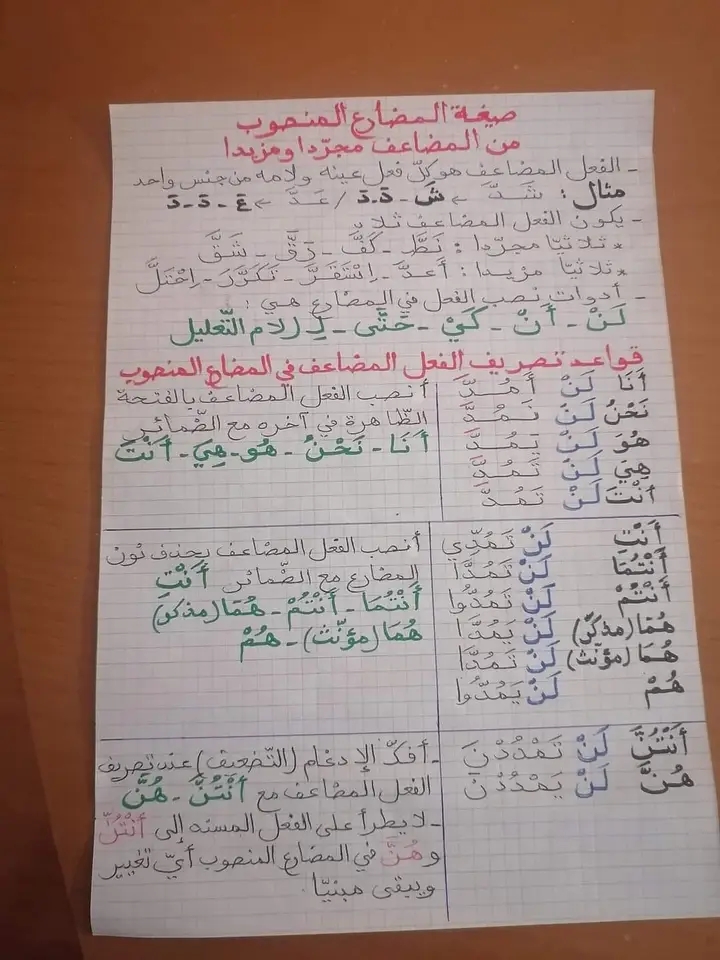 صيغة المضارع المنصوب
من المضاعف مجرّدا ومزيدا
- الفعل المضاعف هو كلّ فعل عينه ولامه من جنس واحد
مثال: شَدَّ ← ش - د - د / عَدَّ ← ع - د - د
- يكون الفعل المضاعف ثلاثيا
* ثلاثيّا مجرّدا: نَطَّ - كَفَّ - رَقَّ - شَقَّ
* ثلاثيّا مزيدا: أَعَدَّ - اِسْتَقَرَّ - تَكَرَّرَ - اِحْتَلَّ
- أدوات نصب الفعل في المضارع هي:
لَنْ - أَنْ - كَيْ - حَتَّى - لِ (لام التّعليل
قواعد تصريف الفعل المضاعف في المضارع المنصوب
أَنَا لَنْ أَمُدَّ
نَحْنُ لَنْ نَمُدَّ
هُوَ لَنْ يَمُدَّ
هِيَ لَنْ تَمُدَّ
أَنْتَ لَنْ تَمُدَّ
أنصب الفعل المضاعف بالفتحة
الظّاهرة في آخره مع الضّمائر
أَنَا - نَحْنُ - هُوَ - هِيَ - أَنْتَ
أَنْتِ لَنْ تَمُدِّي
أَنْتُمَا لَنْ تَمُدَّا
أَنْتُمْ لَنْ تَمُدُّوا
هُمَا (مذكّر) لَنْ يَمُدَّا
هُمَا (مؤنّث) لَنْ تَمُدَّا
هُمْ لَنْ يَمُدُّوا
أنصب الفعل المضاعف بحذف نون
المضارع مع الضّمائر أَنْتِ
أَنْتُمَا - أَنْتُمْ - هُمَا (مذكر)
هُمَا (مؤنّث) - هُمْ
أَنْتُنَّ لَنْ تَمْدُدْنَ
هُنَّ لَنْ يَمْدُدْنَ
- أفكّ الإدغام (التّضعيف) عند تصريف
الفعل المضاعف مع أَنْتُنَّ - هُنَّ
- لا يطرأ على الفعل المسند إلى أَنْتُنَّ
وهُنَّ في المضارع المنصوب أيّ تغيير
ويبقى مبنيّا.